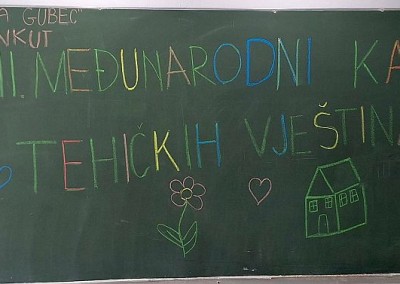 A GUBEC"
NKUT
II. MEĐUNARODNI KA
TEHIČKIH VJEŠTINA